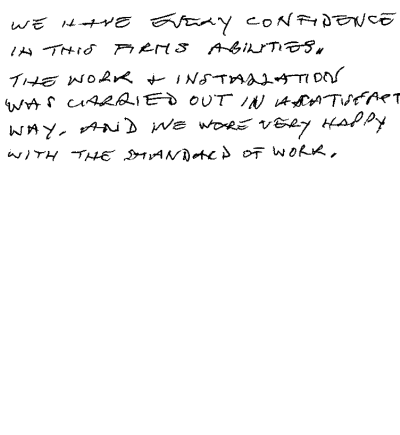 WE HAVE EVERY CONFIDENCE
IN THIS FIRMS ABILITIES.
THE WORK & INSTALLATION
WAS CARRIED OUT IN A SATISFACT
WAY. AND WE WERE VERY HAPPY
WITH THE STANDARD OF WORK.